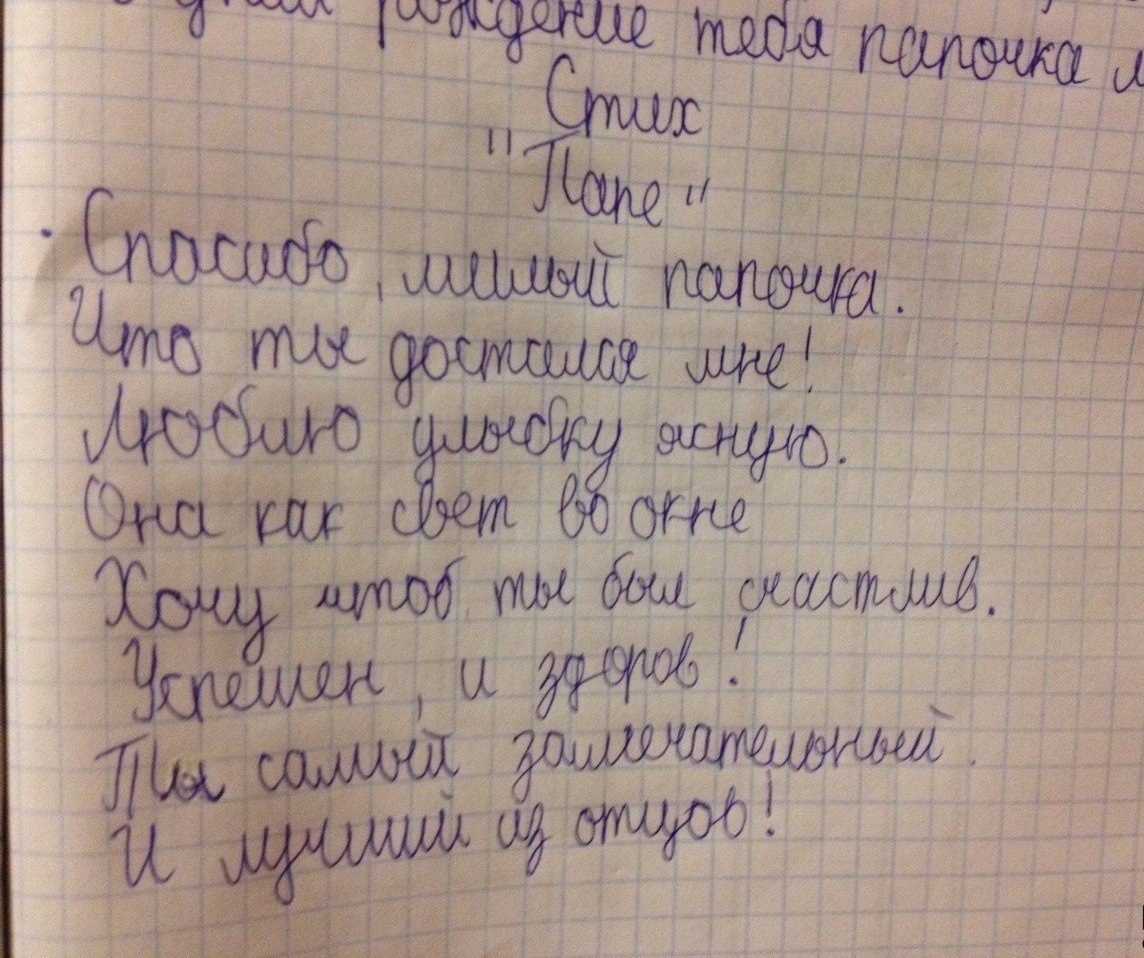 днем рождение тебя папочка
Стих
"Папе"
Спасибо, милый папочка.
Что ты достался мне!
Люблю улыбку ясную.
Она как свет во окне
Хочу чтоб ты был счастлив.
Успешен, и здоров!
Ты самый замечательный.
И лучший из отцов!